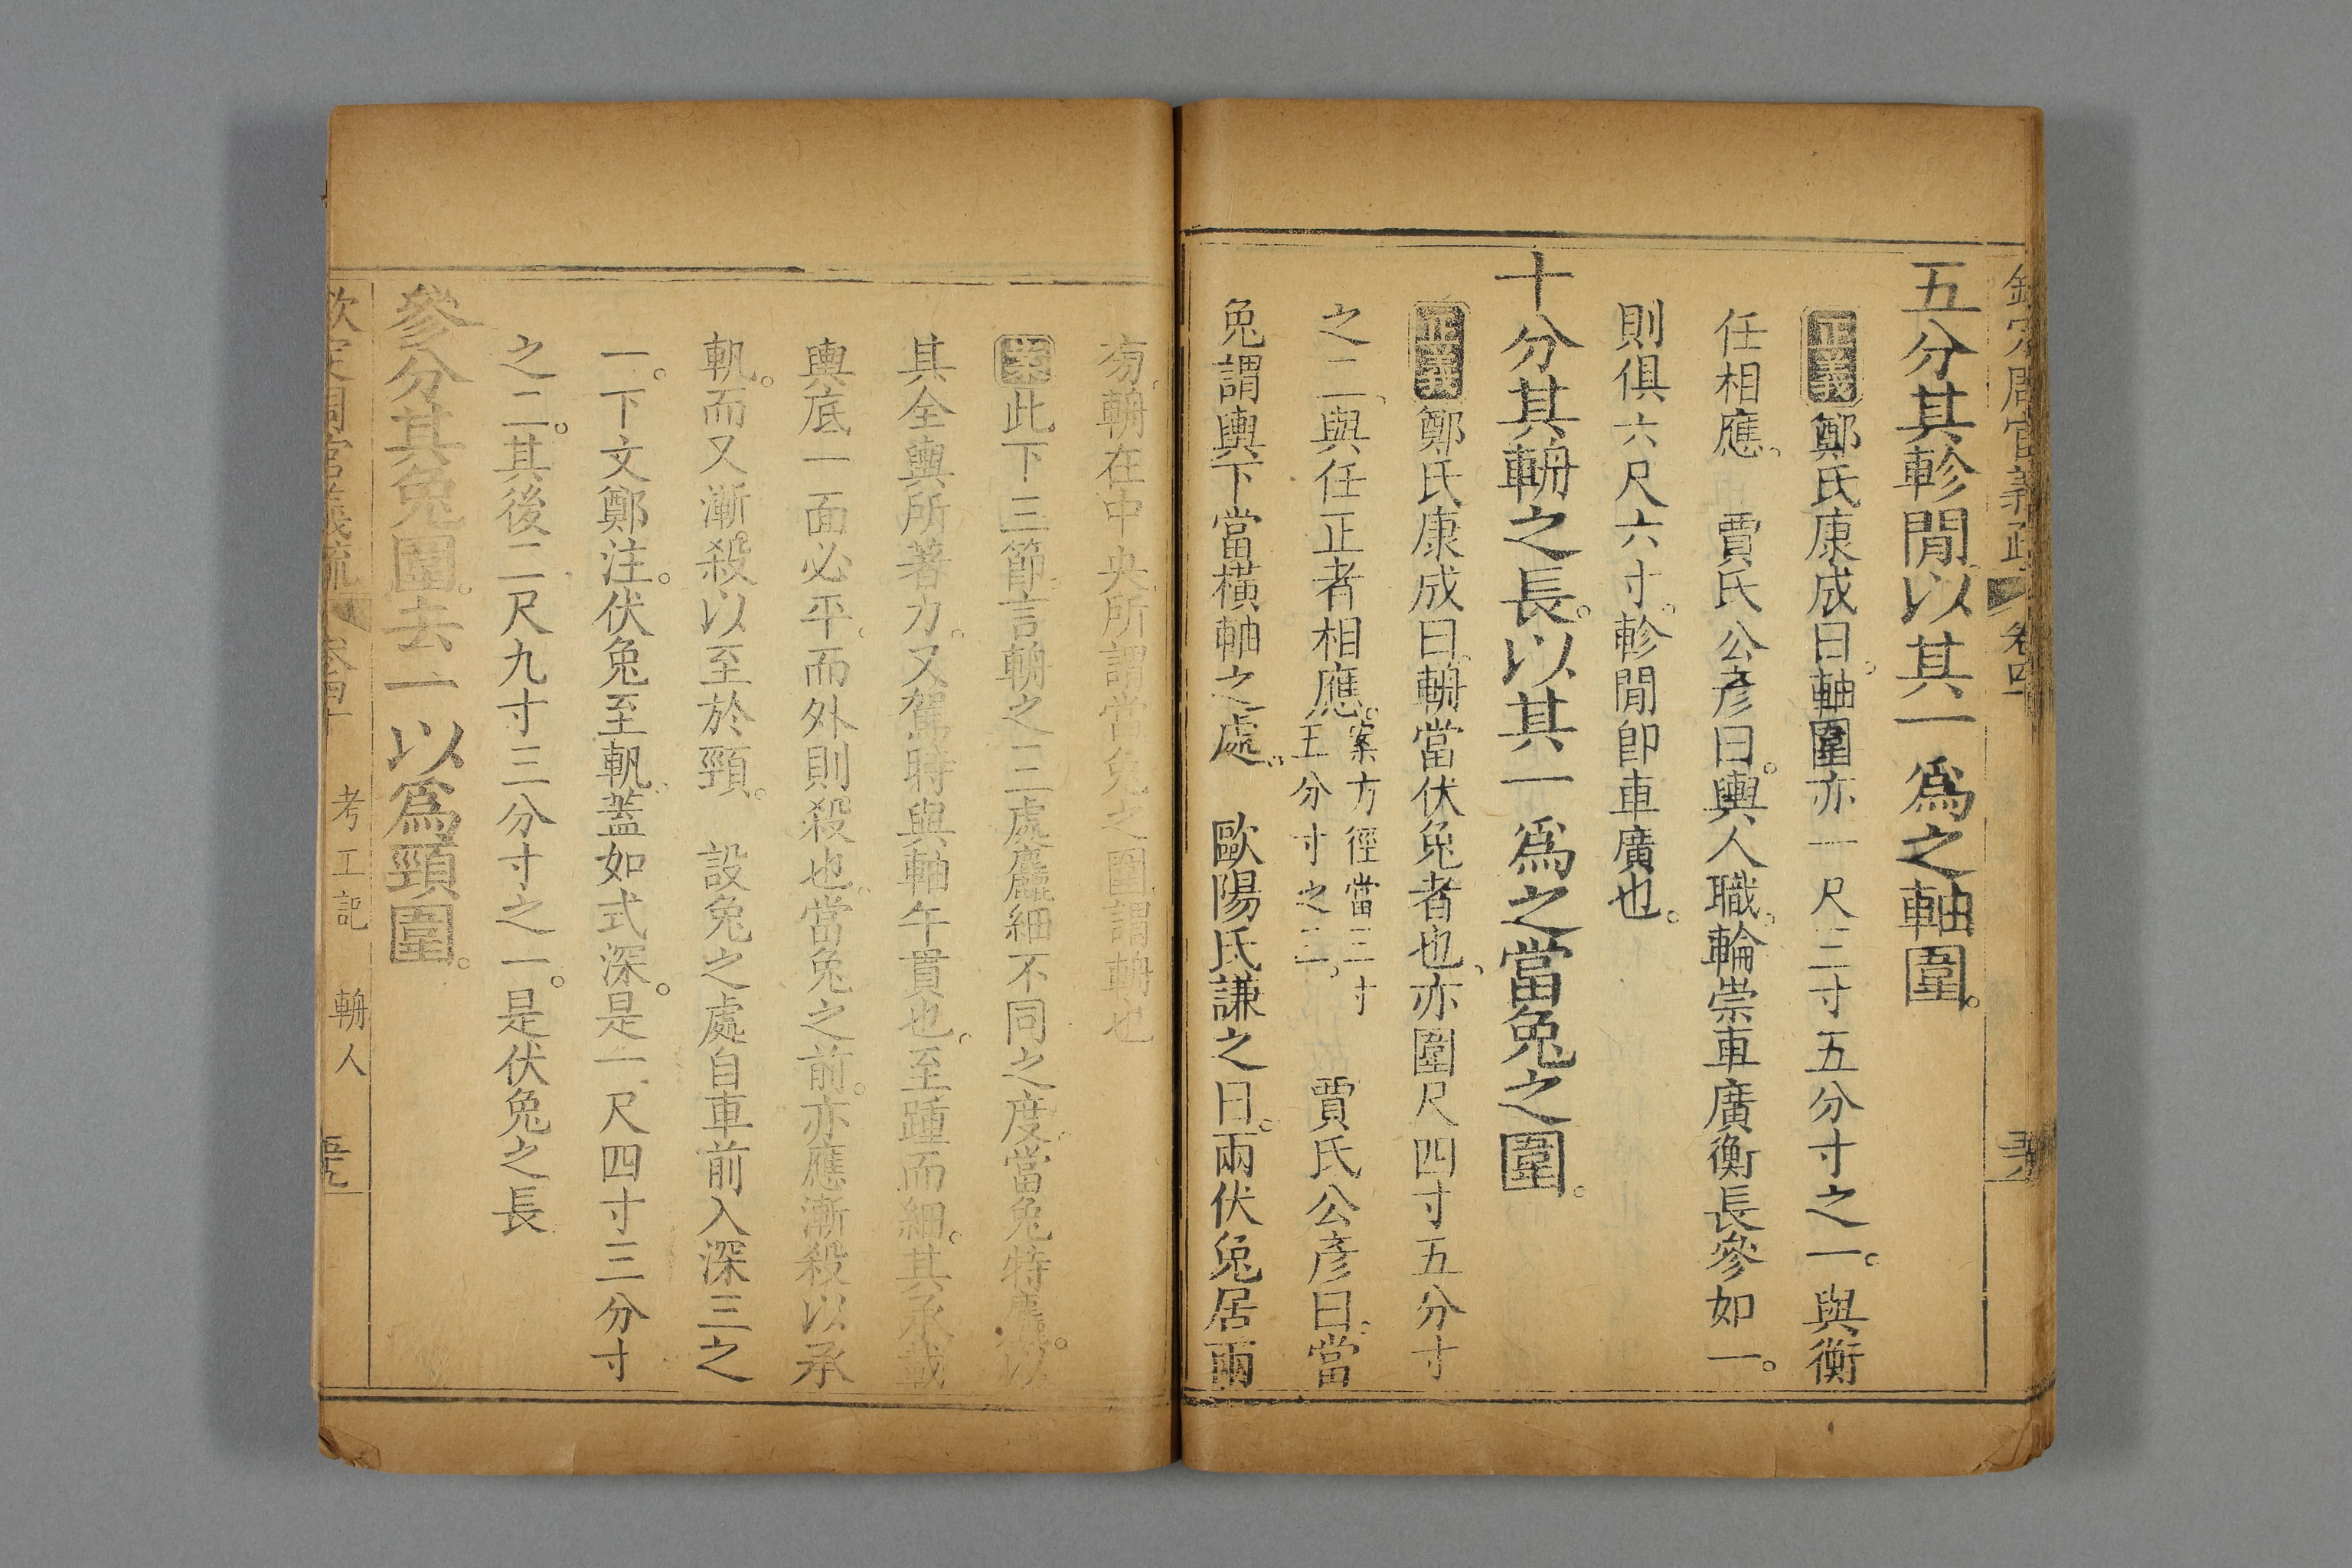 五分其軫閒以其一爲之軸圍。
正義鄭氏康成曰。軸圍亦一尺三寸五分寸之一。與衡
任相應。 賈氏公彥曰。輿人職。輪崇車廣衡長參如一。
則俱六尺六寸。軫閒卽車廣也。
十分其輈之長。以其一爲之當兔之圍。
正義鄭氏康成曰。輈當伏兔者也、亦圍尺四寸五分寸
之二、與任正者相應。案方徑當三寸五分寸之三。 賈氏公彥曰。當
兔謂輿下當橫軸之處。 歐陽氏謙之曰。兩伏兔居兩
旁。輈在中央所謂當兔之圍、謂輈也
案此下三節、言輈之三處麤細不同之度。當兔特麤。以
其全輿所著力。又駕時與軸午貫也。至踵而細。其承載
輿底一面必平。而外則殺也。當兔之前。亦應漸殺以承
軓。而又漸殺以至於頸。 設兔之處自車前入深三之
一。下文鄭注。伏兔至軓。蓋如式深。是一尺四寸三分寸
之二。其後二尺九寸三分寸之一。是伏兔之長
參分其兔圍。去一以爲頸圍。
欽定周官義疏 卷四十 考工記 輈人